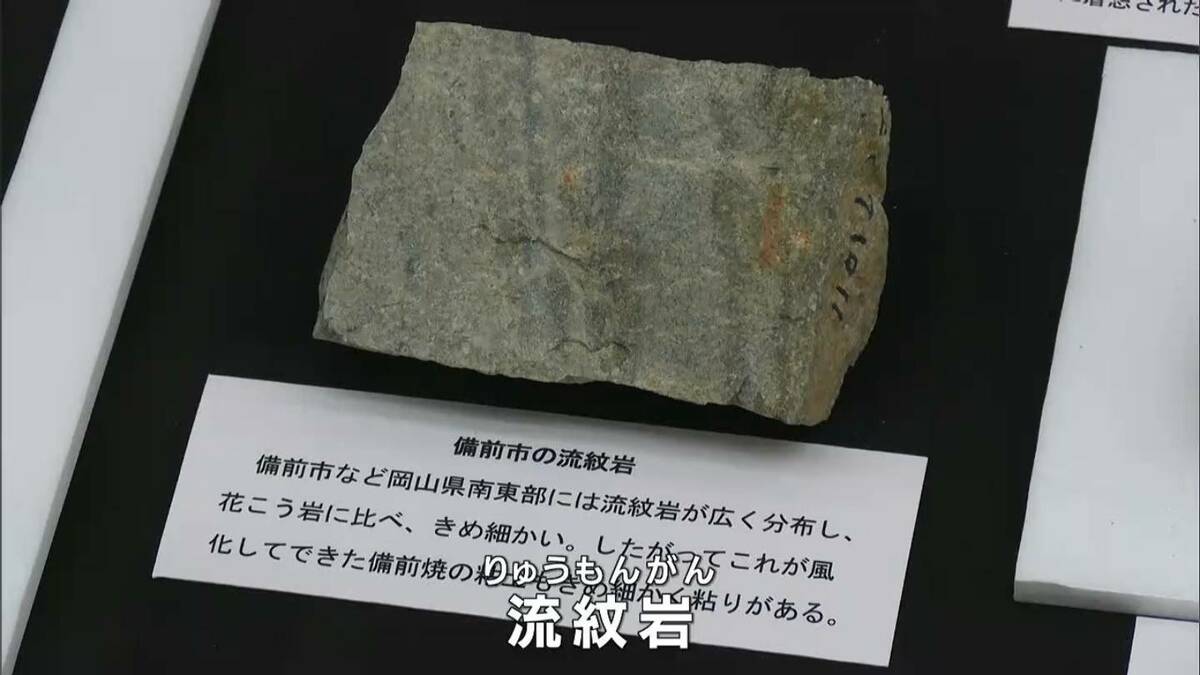 に着想された
11017
備前市の流紋岩
備前市など岡山県南東部には流紋岩が広く分布し、
花こう岩に比べ、きめ細かい。したがってこれが風
化してできた備前焼の粘土もきめ細かく粘りがある。
りゅうもんがん
流紋岩